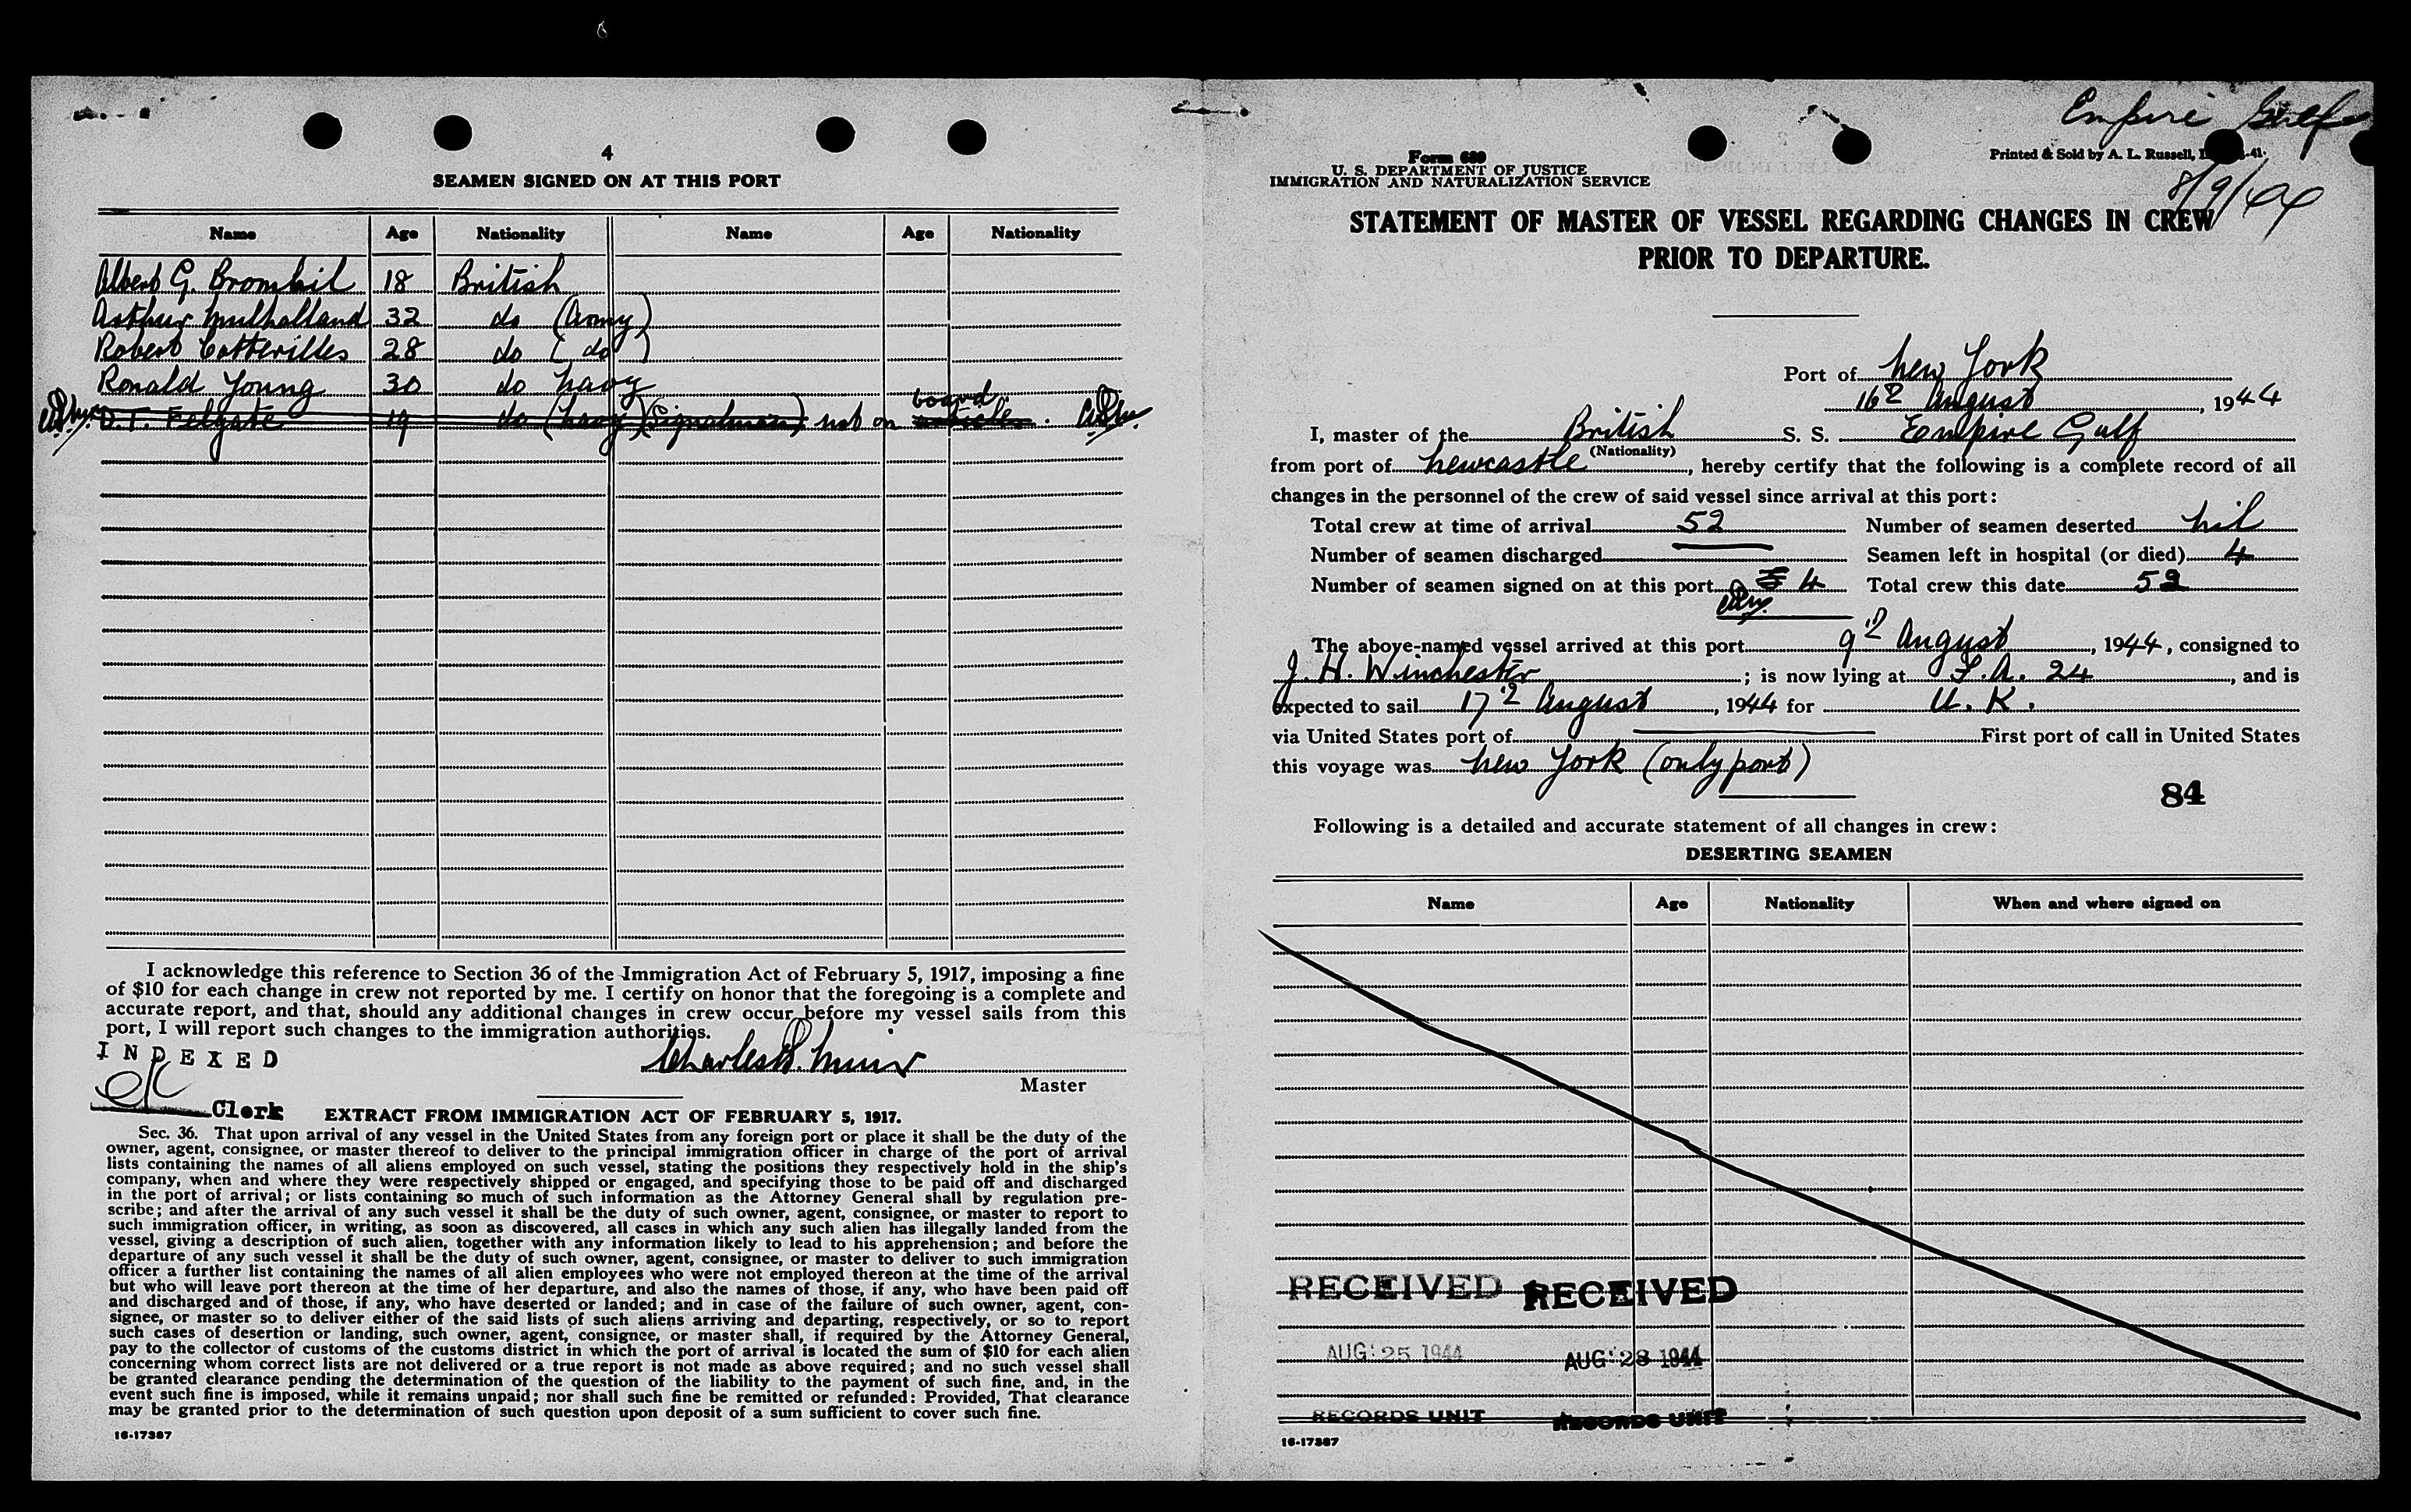 4
SEAMEN SIGNED ON AT THIS PORT
Name Age Nationality Name Age Nationality
Albert G. 18 British
Arthur Mulholland 32 do (Army)
Robert 28 do ( do )
Ronald Young 30 do Navy
D.T. Felgate 19 do (Navy) (Signalman) not on board articles.
I acknowledge this reference to Section 36 of the Immigration Act of February 5, 1917, imposing a fine
of $10 for each change in crew not reported by me. I certify on honor that the foregoing is a complete and
accurate report, and that, should any additional changes in crew occur before my vessel sails from this
port, I will report such changes to the immigration authorities.
INDEXED
Charles
Master
Clerk
EXTRACT FROM IMMIGRATION ACT OF FEBRUARY 5, 1917.
Sec. 36. That upon arrival of any vessel in the United States from any foreign port or place it shall be the duty of the
owner, agent, consignee, or master thereof to deliver to the principal immigration officer in charge of the port of arrival
lists containing the names of all aliens employed on such vessel, stating the positions they respectively hold in the ship's
company, when and where they were respectively shipped or engaged, and specifying those to be paid off and discharged
in the port of arrival; or lists containing so much of such information as the Attorney General shall by regulation pre-
scribe; and after the arrival of any such vessel it shall be the duty of such owner, agent, consignee, or master to report to
such immigration officer, in writing, as soon as discovered, all cases in which any such alien has illegally landed from the
vessel, giving a description of such alien, together with any information likely to lead to his apprehension; and before the
departure of any such vessel it shall be the duty of such owner, agent, consignee, or master to deliver to such immigration
officer a further list containing the names of all alien employees who were not employed thereon at the time of the arrival
but who will leave port thereon at the time of her departure, and also the names of those, if any, who have been paid off
and discharged and of those, if any, who have deserted or landed; and in case of the failure of such owner, agent, con-
signee, or master so to deliver either of the said lists of such aliens arriving and departing, respectively, or so to report
such cases of desertion or landing, such owner, agent, consignee, or master shall, if required by the Attorney General,
pay to the collector of customs of the customs district in which the port of arrival is located the sum of $10 for each alien
concerning whom correct lists are not delivered or a true report is not made as above required; and no such vessel shall
be granted clearance pending the determination of the question of the liability to the payment of such fine, and, in the
event such fine is imposed, while it remains unpaid; nor shall such fine be remitted or refunded: Provided, That clearance
may be granted prior to the determination of such question upon deposit of a sum sufficient to cover such fine.
16-17387
Empire Gulf
Form 689
U. S. DEPARTMENT OF JUSTICE
IMMIGRATION AND NATURALIZATION SERVICE
Printed & Sold by A. L. Russell,
8/9/44
STATEMENT OF MASTER OF VESSEL REGARDING CHANGES IN CREW
PRIOR TO DEPARTURE.
Port of New York
16th August, 1944
I, master of the British S. S. Empire Gulf
(Nationality)
from port of Newcastle, hereby certify that the following is a complete record of all
changes in the personnel of the crew of said vessel since arrival at this port:
Total crew at time of arrival 52 Number of seamen deserted nil
Number of seamen discharged Seamen left in hospital (or died) 4
Number of seamen signed on at this port 5 4 Total crew this date 52
The above-named vessel arrived at this port 9th August, 1944, consigned to
J. H. Winchester; is now lying at 24, and is
expected to sail 17th August, 1944 for U. K.
via United States port of First port of call in United States
this voyage was New York (only port)
84
Following is a detailed and accurate statement of all changes in crew:
DESERTING SEAMEN
Name Age Nationality When and where signed on
RECEIVED RECEIVED
AUG 25 1944 AUG 28 1944
RECORDS UNIT RECORDS UNIT
16-17387